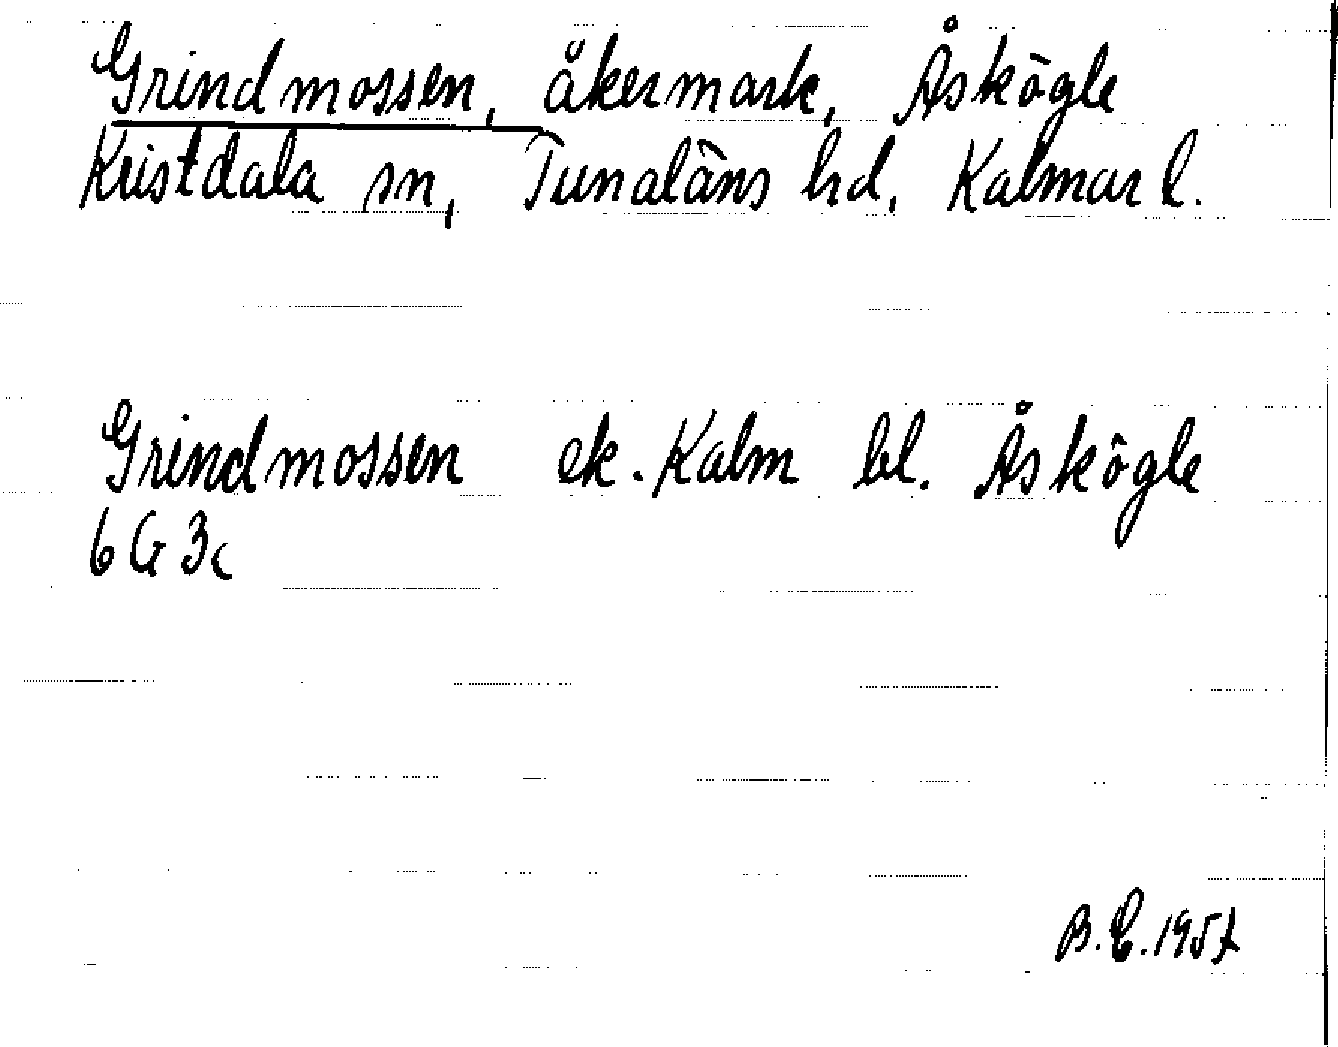 Grindmossen, åkermark, Åskögle
Kristdala sn, Tunaläns hd, Kalmar l.
Grindmossen ek. Kalm bl. Åskögle
6G3c
B.E.1957